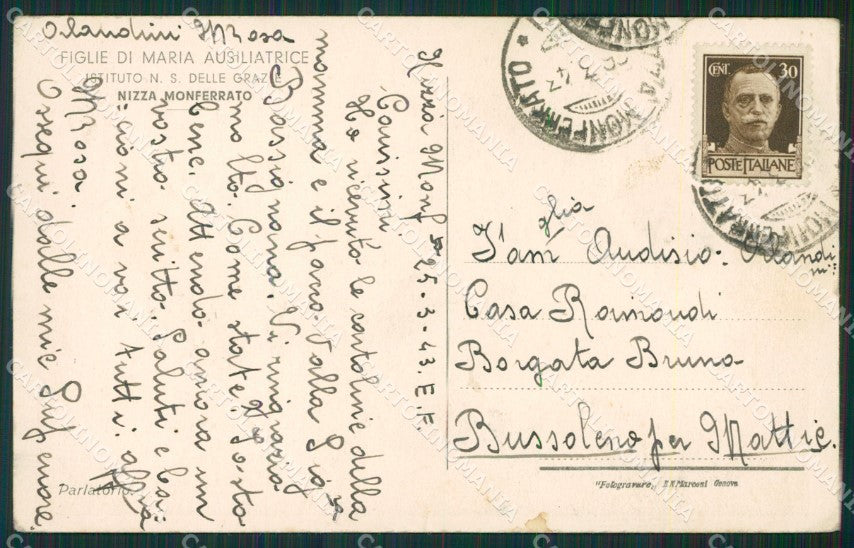 Orlandini Rosa
FIGLIE DI MARIA AUSILIATRICE
ISTITUTO N. S. DELLE GRAZIE
NIZZA MONFERRATO
Nizza Monf to 25-3-43. E. F.
Carissimi
Ho ricevuto le cartoline della
mamma e il pacco dalla Sig.ra
Bassignana. Vi ringrazio
molto. Come state? Io sto
bene. Attendo ancora un
vostro scritto. Saluti e baci
a voi tutti
Rosa.
Ossequi dalle mie Superiore
Parlatorio.
CENT. 30
POSTE ITALIANE
MONFERRATO
25.3.43
Fam glia Audisio-Orlandini
Casa Raimondi
Borgata Bruno
Bussoleno per Mattie.
"Fotogravure" E.N. Marconi Genova
CARTOLINOMANIA